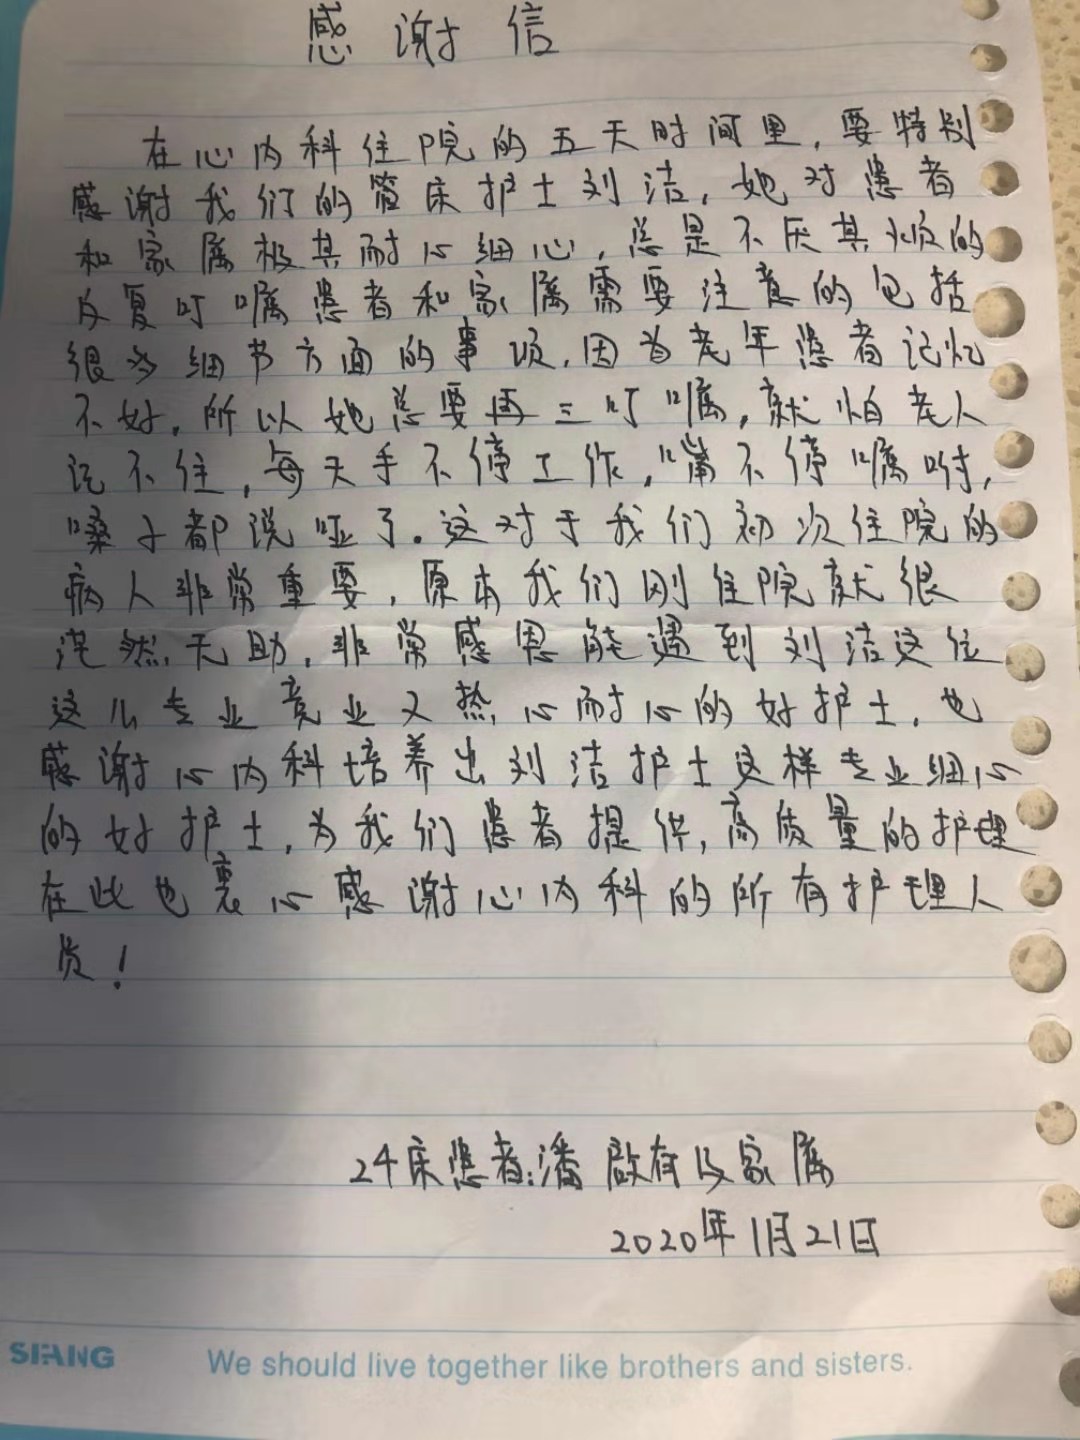 感谢信
在心内科住院的五天时间里，要特别
感谢我们的管床护士刘洁，她对患者
和家属极其耐心细心，总是不厌其烦的
反复叮嘱患者和家属需要注意的包括
很多细节方面的事项，因为老年患者记忆
不好，所以她总要再三叮嘱，就怕老人
记不住，每天手不停工作，嘴不停嘱咐，
嗓子都说哑了。这对于我们初次住院的
病人非常重要，原本我们刚住院就很
茫然无助，非常感恩能遇到刘洁这位
这么专业竞业又热心耐心的好护士，也
感谢心内科培养出刘洁护士这样专业细心
的好护士，为我们患者提供，高质量的护理
在此也裹心感谢心内科的所有护理人
员！
24床患者：潘啟有及家属
2020年1月21日
SIFANG We should live together like brothers and sisters.